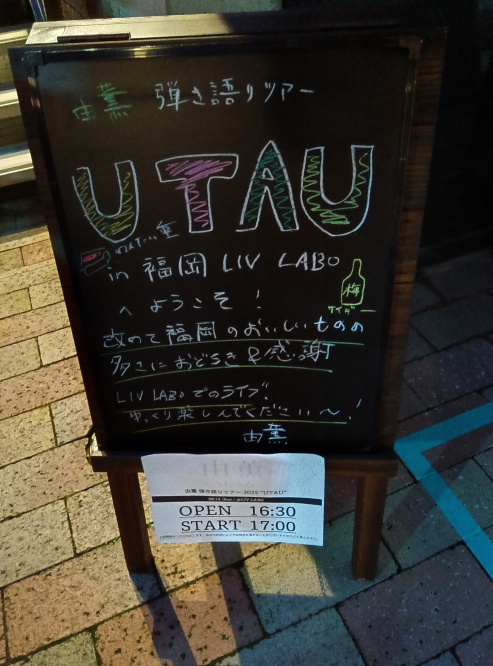 由薫 弾き語りツアー
UTAU
めんたい重
in 福岡 LIV LABO
へようこそ!
梅
サイダー
改めて福岡のおいしいものの
多さにおどろき&感謝
LIV LABOでのライブ、
ゆっくり楽しんでください〜!
由薫
由薫
由薫 弾き語りツアー 2025 "UTAU"
@LIV LABO
OPEN 16:30
START 17:00